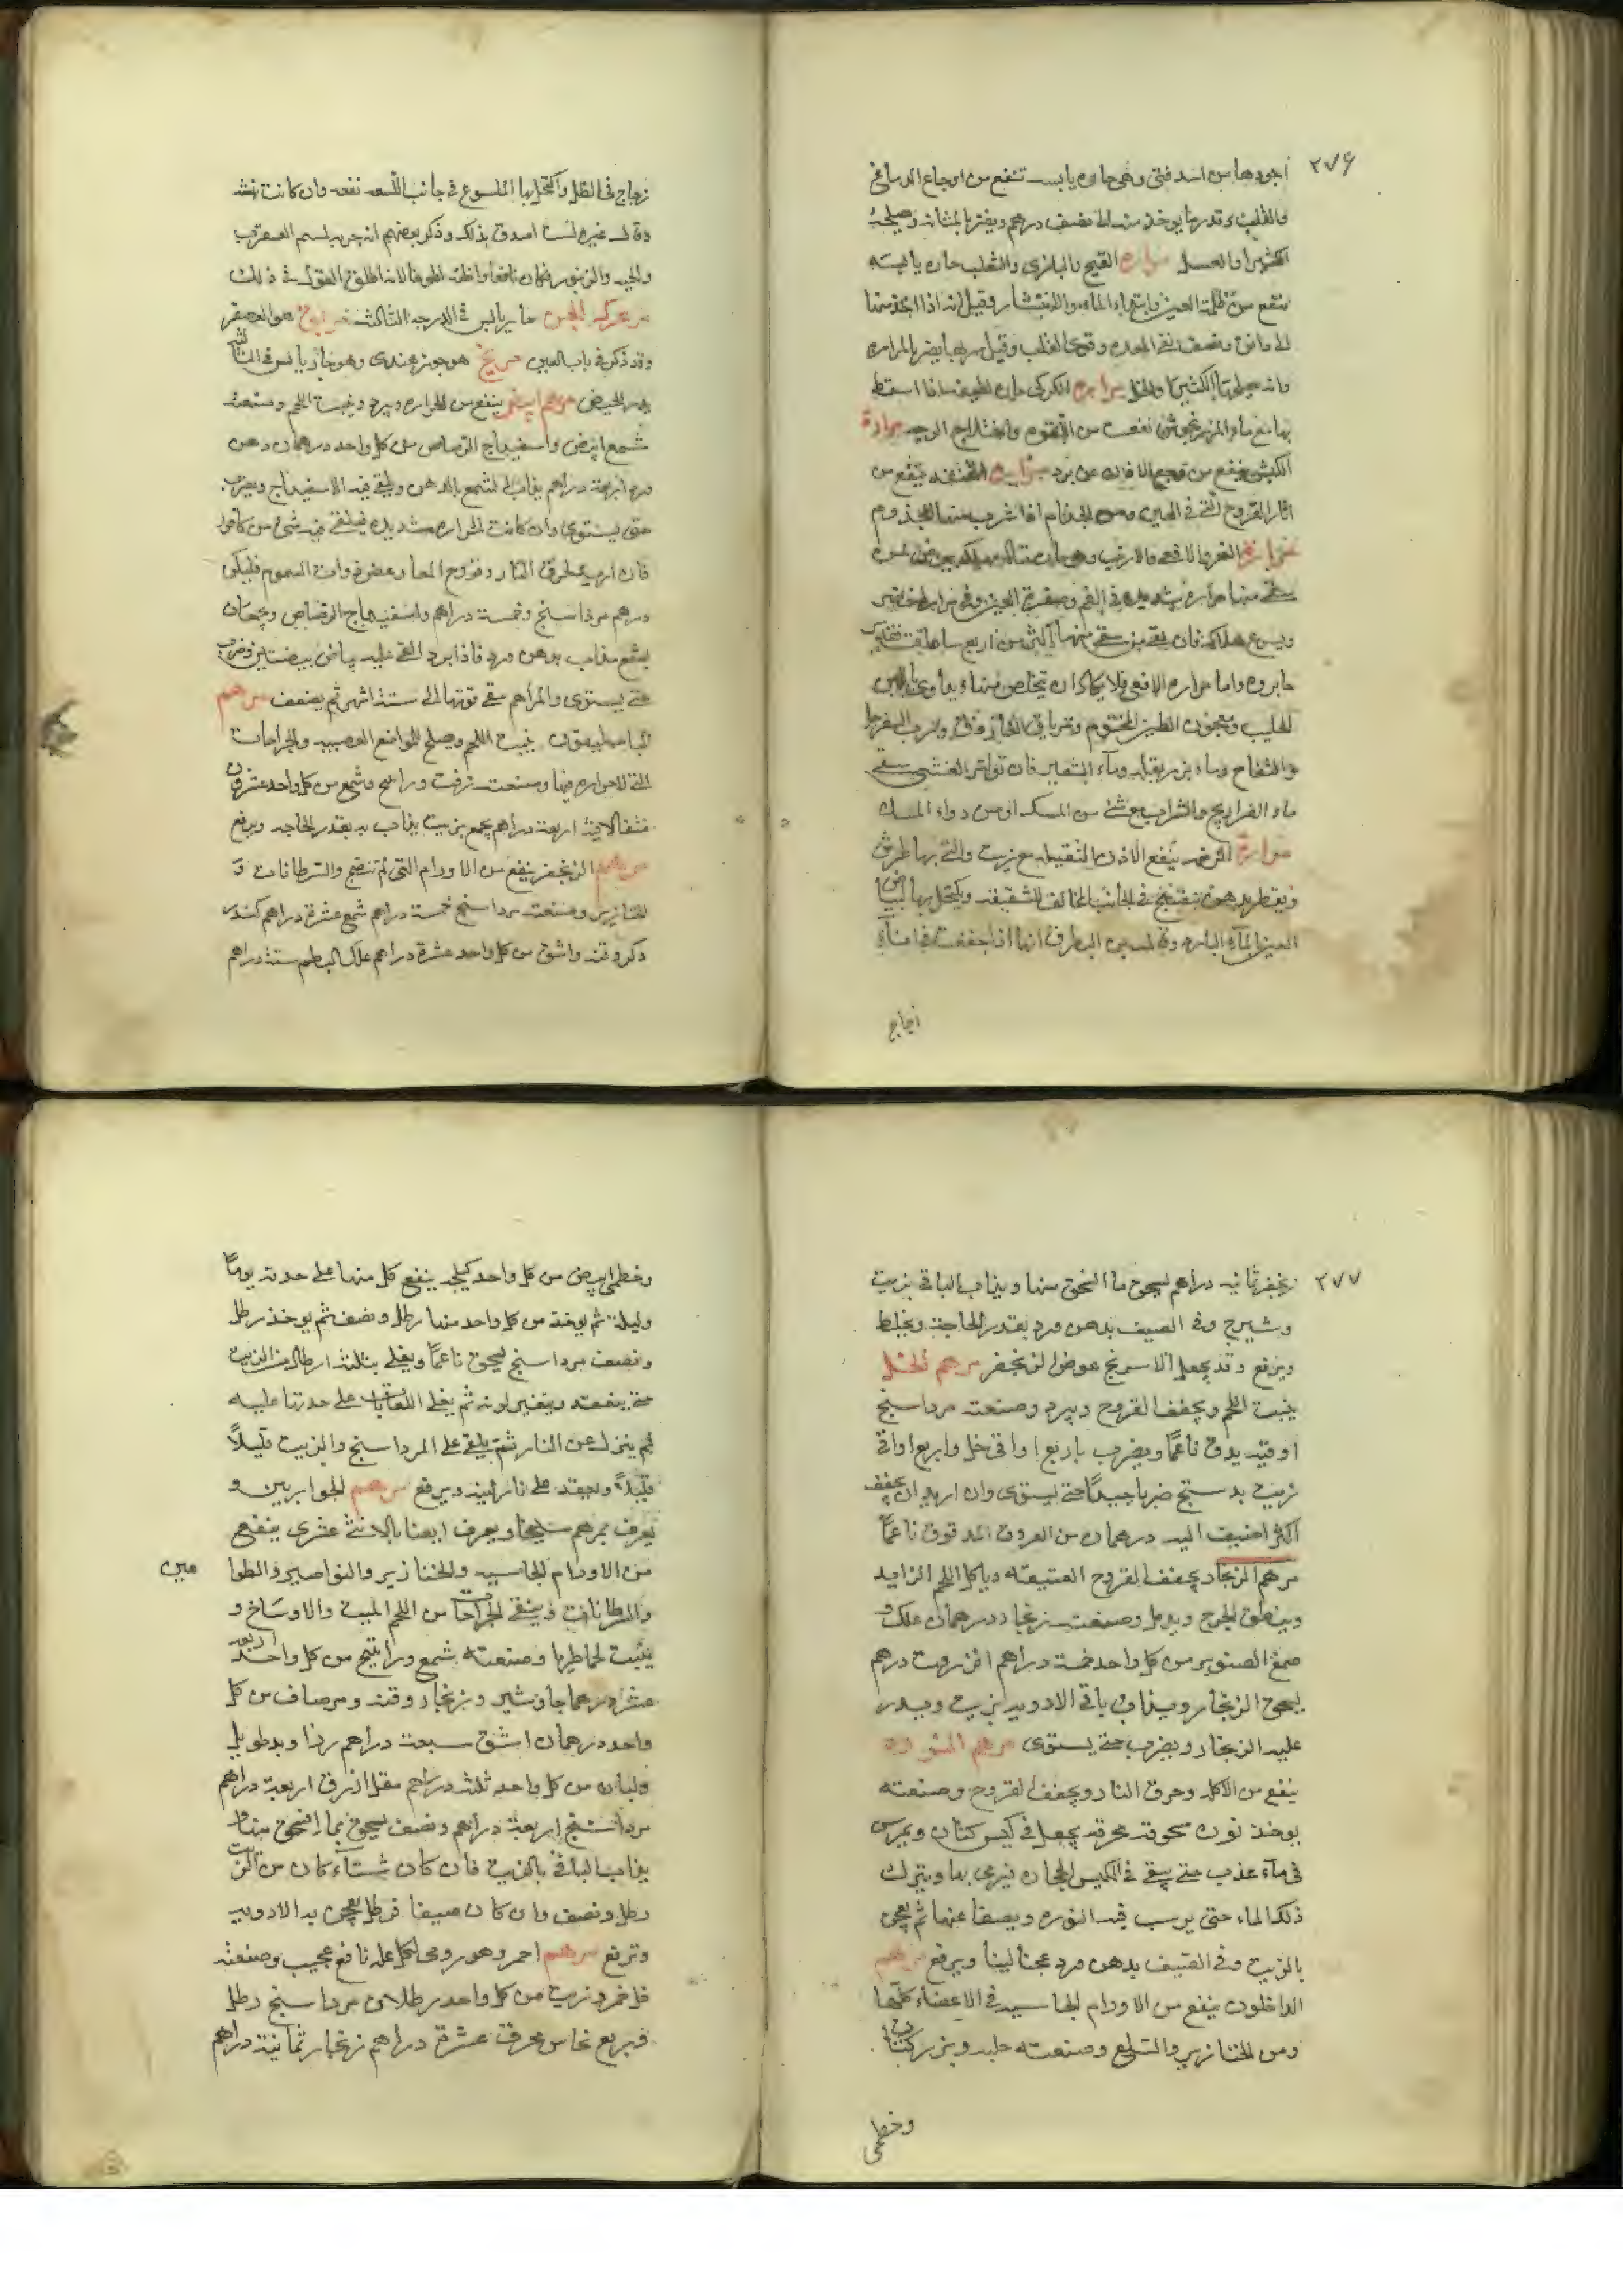 ٢٧٦
اجودها من اسد فتى وهى حاره يابسه تنفع من اوجاع الدماغ
والقلب وقدر ما يوخذ منه الى نصف درهم ويضر بالمثانه ويصلحه
الكثيرا والعسل مراره القبج والبازى والثعلب حاره يابسه
تنفع من ظلمة العين وابتداء الماء والانتشار وقيل انه اذا اخذ منها
الى دانق ونصف نقى المعده وقوى القلب وقيل يضر بالمراره
وانه يصلحها الكثيرا والخل مراره الكركى حاره لطيفه اذا اسعط
بها مع ماء المرزنجوش نفعت من اللقوه واختلاج الوجه مرارة
الكبش ينفع من وجع الاذن من برد مرارة القنفذ ينفع من
اثار القروح التى فى العين ومن الجذام اذا شرب منها المجذوم
مرارة النمر والافعى والارنب وهى حاره قتاله مهلكه يعرض لمن
سقى منها مراره شديده فى الفم وصفرة العين
ويسرع هلاكه فان بقى من سقى منها اكثر من اربع ساعات فقد
جاوزه واما مراره الافعى فلا يكاد ان يتخلص منها ويداوى باللبن
الحليب ومعجون الطين المختوم وترياق الفاروق وبرب السفرجل
والتفاح وماء بزر بقله وماء الشعير فان تواتر الغشى سقى
ماء الفراريج والشراب مع شى من المسك او من دواء المسك
مرارة الرخمه ينفع الاذن الثقيله مع زيت والتى بها طرش
ويقطر بدهن بنفسج فى الجانب المخالف للشقيقه ويكتحل بها لبياض
العين بالماء البارد وقال ابن البطريق انها اذا جففت فى اناء
زجاج
زجاج فى الظل واكتحل بها الملسوع فى جانب اللسعه نفعه وان كانت نهشه
وقال غيره لست اصدق بذلك وذكر بعضهم انه جربه لسم العقرب
والحيه والزنبور فكان نافعا واظنه الطرفا لانه اطلق القول فى ذلك
حار يابس فى الدرجه الثالثه هو العصفر
وقد ذكر فى باب العين مريخ هو جوز هندى وهو حار يابس فى الثالثه
يدر الحيض مرهم ابيض ينفع من الحراره ويبرد وينبت اللحم وصنعته
شمع ابيض واسفيداج الرصاص من كل واحد درهمان دهن
ورد اربعة دراهم يذاب الشمع بالدهن ويلقى فيه الاسفيداج ويضرب
حتى يستوى وان كانت الحراره شديده فيلقى فيه شىء من كافور
فان اريد لحرق النار وقروح المعا وعض ذوات السموم فليكن
درهم مرداسنج وخمسة دراهم واسفيداج الرصاص ويجعلان
بشمع مذاب بدهن ورد فاذا برد القى عليه بياض بيضتين وضرب
حتى يستوى والمراهم تبقى قوتها الى ستة اشهر ثم يضعف مرهم
الباسليقون ينبت اللحم ويصلح للمواضع العصبيه والجراحات
التى لا حراره فيها وصنعته زفت وراتينج وشمع من كل واحد عشرون
مثقالا قنه اربعة دراهم يجمع بزيت يذاب به بقدر الحاجه ويرفع
مرهم الزنجفر ينفع من الاورام التى لم تنضج والسرطانات و
الخنازير وصنعته مرداسنج خمسة دراهم شمع عشرة دراهم كندر
ذكر وقنه واشق من كل واحد عشرة دراهم علك البطم ستة دراهم
٢٧٧
زنجفر ثمانيه دراهم يسحق ما انسحق منها ويذاب الباقى بزيت
وشيرج وفى الصيف بدهن ورد بقدر الحاجة ويخلط
ويرفع وقد يجعل الاسرنج عوض الزنجفر مرهم الخل
ينبت اللحم ويجفف القروح ويبرد وصنعته مرداسنج
اوقيه يدق ناعمًا ويضرب باربع اواقى خل واربع اواقى
زيت بدستج ضربا جيدًا حتى يستوى وان اريد ان يجفف
اكثر اضيف اليه درهمان من العروق المدقوق ناعمًا
مرهم الزنجار يجفف القروح العتيقه وياكل اللحم الزايد
وينطق الجرح ويدمل وصنعته زنجار درهمان علك و
صمغ الصنوبر من كل واحد خمسة دراهم انزروت درهم
يسحق الزنجار ويذاب باقى الادويه بزيت ويذر
عليه الزنجار ويضرب حتى يستوى مرهم النوره
ينفع من الاكله وحرق النار ويجفف القروح وصنعته
يوخذ نوره مسحوقه محرقه يجعل فى كيس كتان ويمرس
فى ماء عذب حتى يبقى فى الكيس الحجاره فيرمى بها ويترك
ذلك الماء حتى يرسب فيه النوره ويصفا عنها ثم يعجن
بالزيت وفى الصيف بدهن ورد عجنا لينا ويرفع مرهم
الداخلون ينفع من الاورام الجاسيه فى الاعضاء كلها
ومن الخنازير والسلع وصنعته حلبه وبزر كتان
وخطمى
وخطمى ابيض من كل واحد كيلجه ينقع كل منها على حدته يومًا
وليلة ثم يوخذ من كل واحد منها رطل ونصف ثم يوخذ رطل
ونصف مرداسنج يسحق ناعمًا ويغلى بثلثه ارطال من الزيت
حتى ينعقد ويتغير لونه ثم يغلى اللعابات على حدتها عليه
ثم ينزل عن النار ثم يلقى على المرداسنج والزيت قليلًا
قليلًا ويعقد على نار لينه ويرفع مرهم الحواريين و
يعرف بمرهم سليخا ويعرف ايضا بالاثنى عشرى ينفع
من الاورام الجاسيه والخنازير والنواصير والطوا
عين
والسرطانات وينقى الجراحات من اللحم الميت والاوساخ و
ينبت لحما طريا وصنعته شمع وراتينج من كل واحد اربعه
عشر درهما جاوشير وزنجار وقنه ومرصاف من كل
واحد درهمان اشق سبعة دراهم زراوند طويل
ولبان من كل واحد ثلثه دراهم مقل ازرق اربعة دراهم
مرداسنج اربعة دراهم ونصف يسحق ما انسحق منها و
يذاب الباقى بالزيت فان كان شتاءً كان من الزيت
رطل ونصف وان كان صيفا فرطل يعجن به الادويه
وترفع مرهم احمر وهو رومى لكل عله نافع عجيب وصنعته
خل خمر وزيت من كل واحد رطلان مرداسنج رطل
وربع نحاس محرق عشرة دراهم زنجار ثمانية دراهم